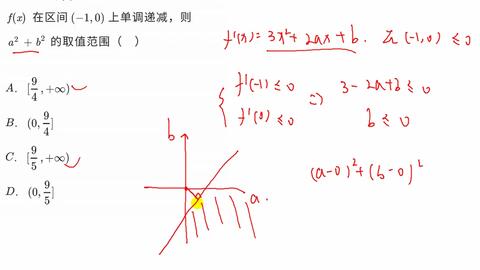 f(x) 在区间 (−1,0) 上单调递减，则
a² + b² 的取值范围（ ）
A. [9/4, +∞)
B. (0, 9/4]
C. [9/5, +∞)
D. (0, 9/5]
f'(x) = 3x² + 2ax + b. 在 (-1,0) ≤ 0
{ f'(-1) ≤ 0 ⇒ 3 - 2a + b ≤ 0
f'(0) ≤ 0 b ≤ 0
b
a.
(a-0)² + (b-0)²